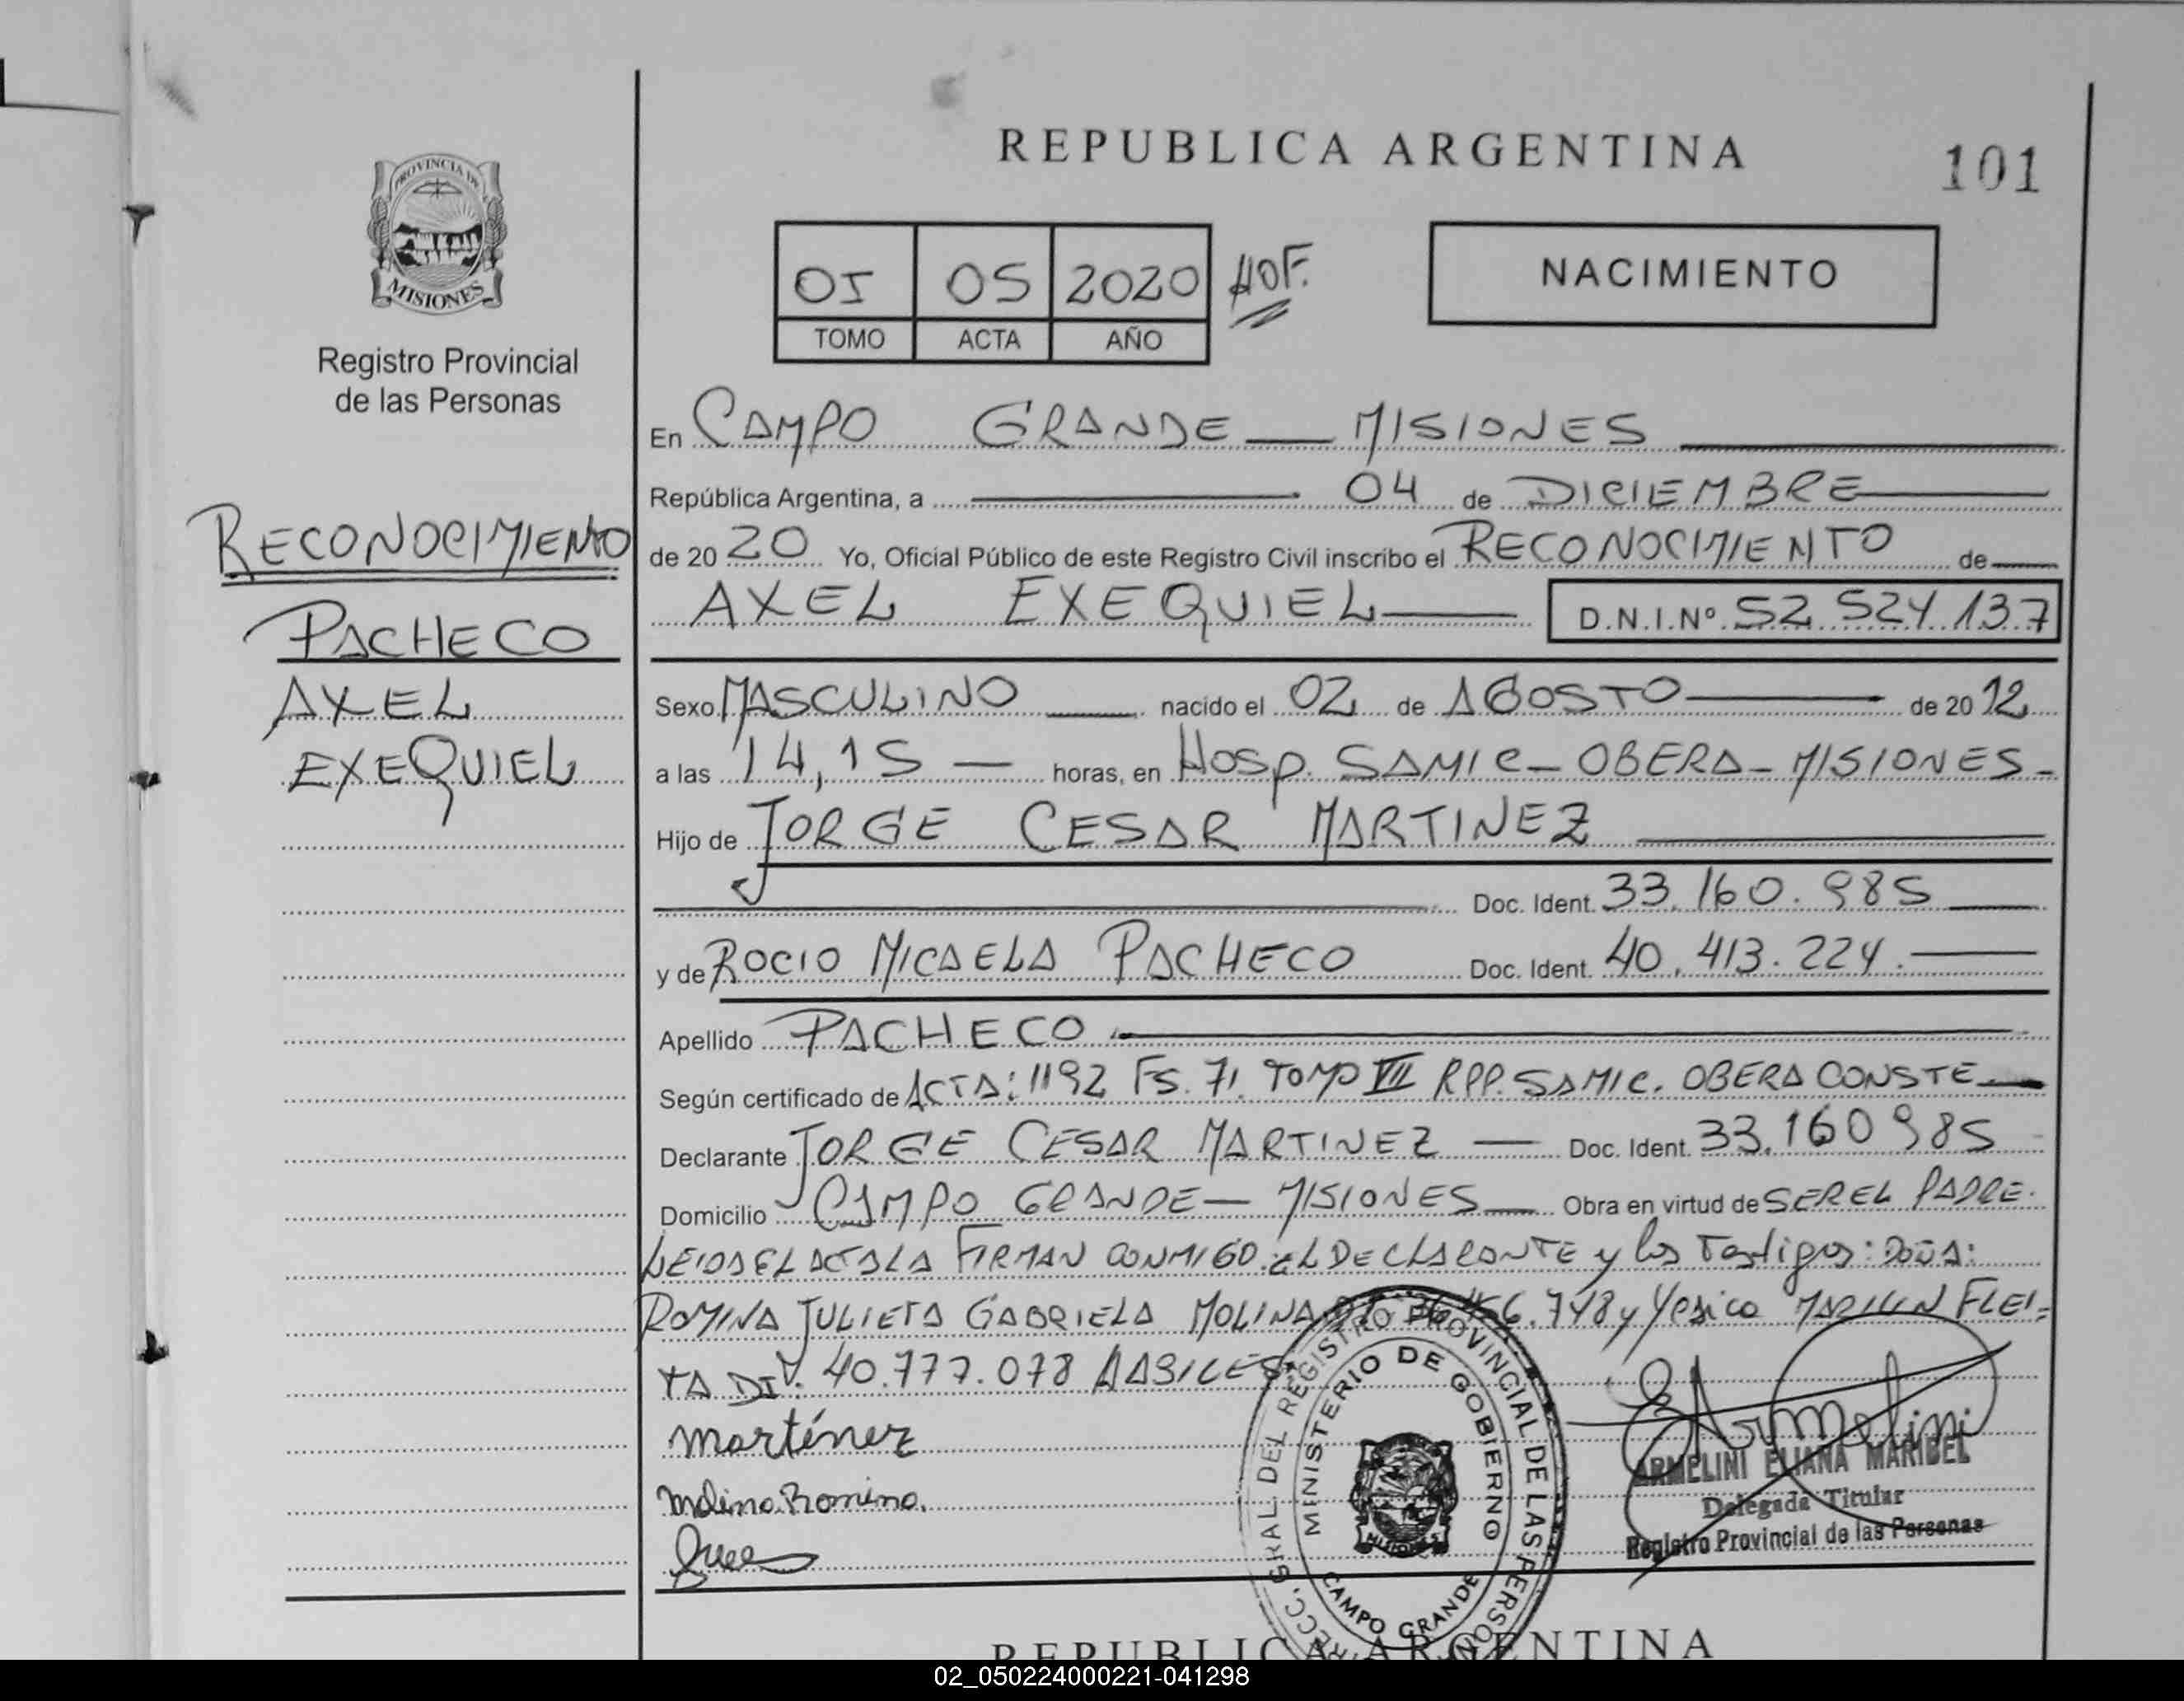 REPUBLICA ARGENTINA
101
PROVINCIA DE
MISIONES
Registro Provincial
de las Personas
RECONOCIMIENTO
PACHECO
AXEL
EXEQUIEL
05 05 2020 HOF.
TOMO ACTA AÑO
NACIMIENTO
En CAMPO GRANDE — MISIONES
República Argentina, a 04 de DICIEMBRE
de 2020 Yo, Oficial Público de este Registro Civil inscribo el RECONOCIMIENTO de
AXEL EXEQUIEL D.N.I.Nº 52.524.137
Sexo MASCULINO nacido el 02 de AGOSTO de 2012
a las 14,15 — horas, en HOSP. SAMIC - OBERA - MISIONES -
Hijo de JORGE CESAR MARTINEZ
Doc. Ident. 33.160.985
y de ROCIO MICAELA PACHECO Doc. Ident. 40.413.224.
Apellido PACHECO
Según certificado de ACTA: 1192 FS. 71 TOMO VII RPP. SAMIC. OBERA CONSTE
Declarante JORGE CESAR MARTINEZ — Doc. Ident. 33.160985
Domicilio CAMPO GRANDE — MISIONES Obra en virtud de SER EL PADRE.
LEIDA EL ACTA LA FIRMAN CONMIGO EL DECLARANTE y los Testigos: DOÑA:
ROMINA JULIETA GABRIELA MOLINA 748 y Yesica FLEI=
TA DI. 40.777.078 HABILES
martínez
Molina Romina.
Armelini
ARMELINI ELIANA MARIBEL
Delegada Titular
Registro Provincial de las Personas
DIRECC. GRAL. DEL REGISTRO PROVINCIAL DE LAS PERSONAS
MINISTERIO DE GOBIERNO
CAMPO GRANDE
REPUBLICA ARGENTINA
02_050224000221-041298